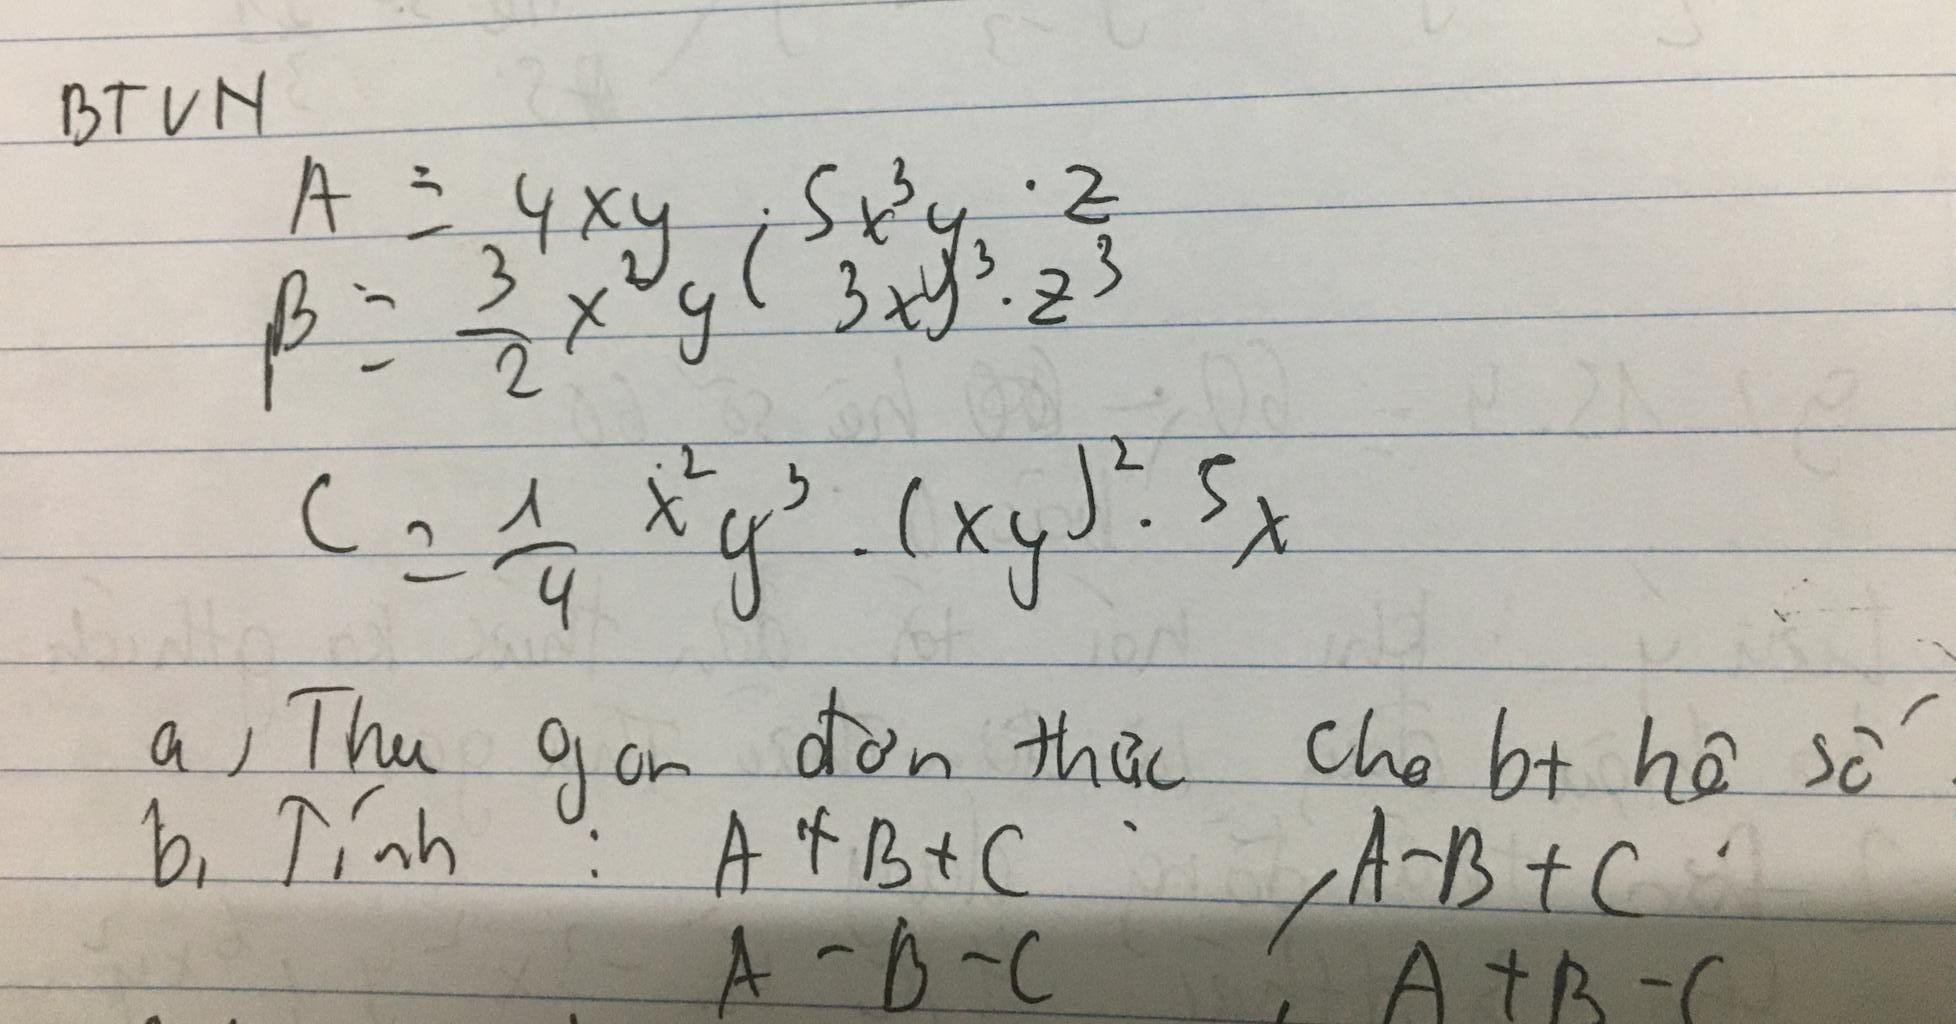 BTVN
A = 4xy . 5x³y . z
B = 3/2 x²y ( 3xy³ . z³
C = 1/4 x²y³ . (xy)² . 5x
a, Thu gon đơn thức cho bt hệ số
b, Tính : A + B + C ; A - B + C ;
A - B - C ; A + B - C